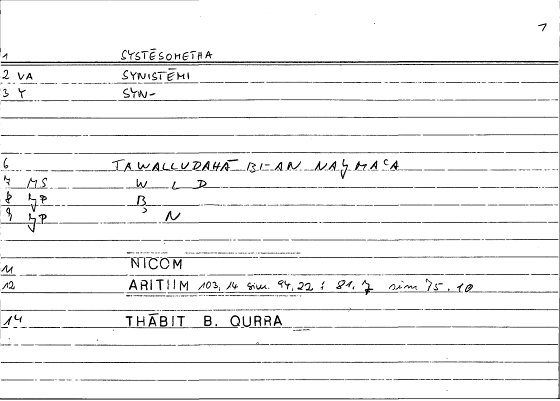 1
1 SYSTĒSOMETHA
2 VA SYNISTĒMI
3 Y SYN-
6 TAWALLUDAHĀ BI-AN NAJMAʿA
7 MS W L D
8 JP B
9 JP ʾ N
11 NICOM
12 ARITIIM 103, 14 sim. 94, 22 ; 81, 7 sim 75, 10
14 THĀBIT B. QURRA